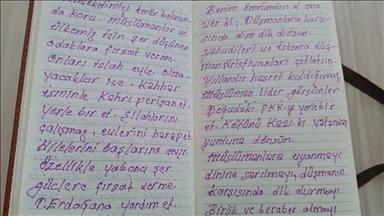 memleketimizi terör belasın
da koru. Müslümanlar ve
ülkemiz için şer düşüner
odaklara fırsat verme.
Onları ıslah eyle. Olma-
yacaklar ise. Kahhar
isminle Kahrı perişan et
yerle bir et. Silahlarını
çalışmaz, evlerini harap et.
Hilelerini başlarına çevir.
Özellikle yabancı şer
güçlere fırsat verme.
T. Erdoğana yardım et.
Benim Emrimden
Düşmanların karşı-
sında dim dik dursun.
yahudileri ve islama düş-
man Hıristyanları çatlatsın.
Yıllardır hasret kaldığımız
Müslüman lider görsünler
Doğudaki PKK yı yerle bir
et. Kökünü Kazı ki vatanımız
yumuna dönsün.
Müslümanlara uyanmayı
dinine sarılmayı, düşmanın
karşısında dik durmayı
Birlik ve beraber olmayı